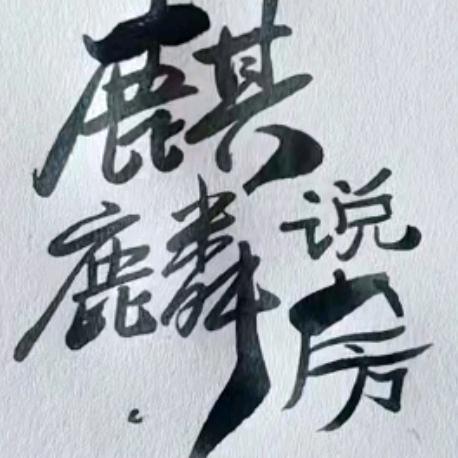 麒麟
说房